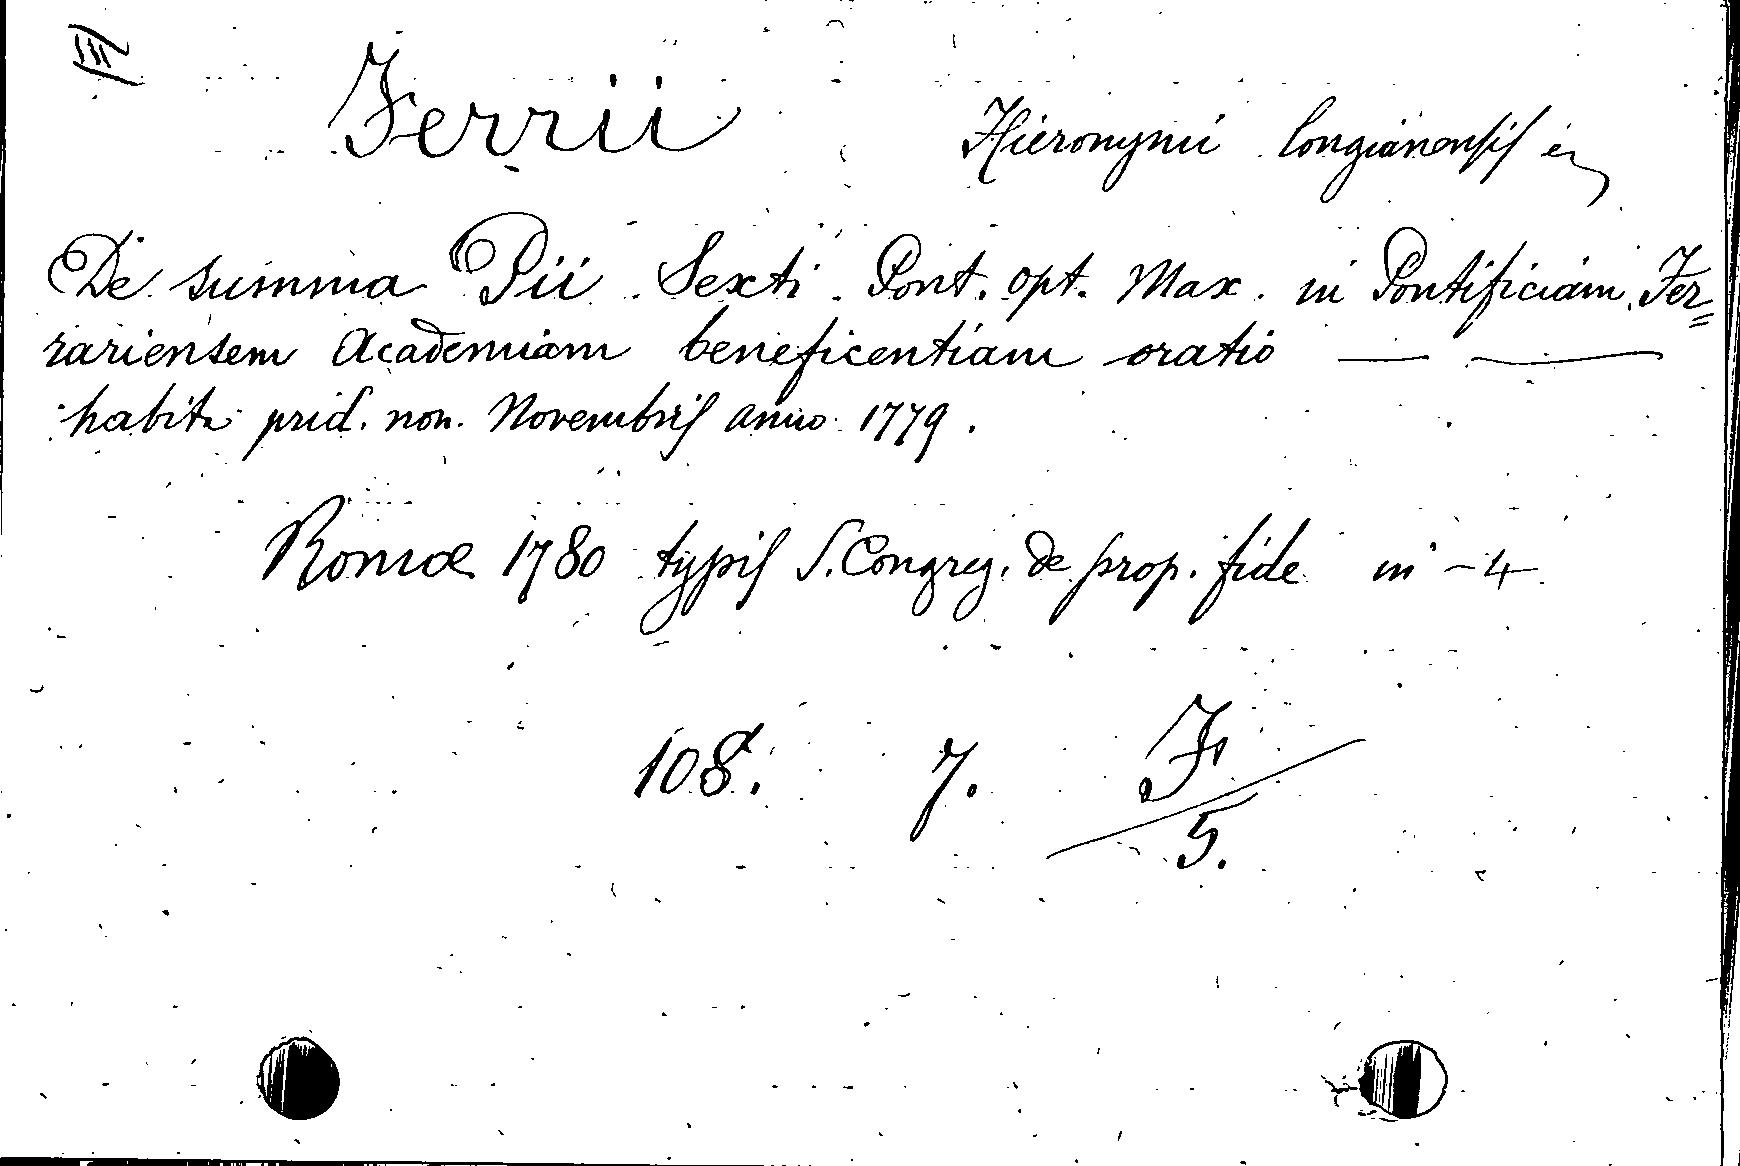 III
Ferrii Hieronymi longianensis
De summa Pii Sexti Pont. opt. Max. in Pontificiam Fer=
rariensem Academiam beneficentiam oratio — —
habita prid. non. Novembris anno 1779.
Romae 1780 typis S. Congreg. de prop. fide in -4
108. 7. F
5.